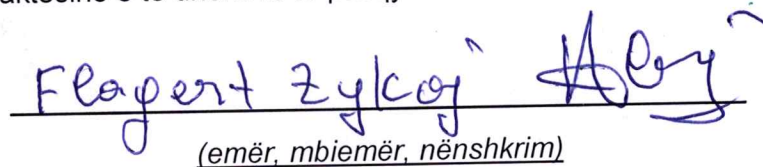 Flagert Zykaj
(emër, mbiemër, nënshkrim)